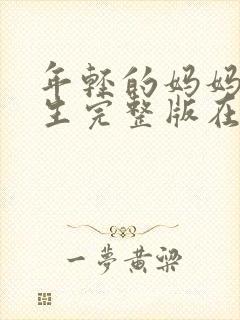 年轻的妈妈
生完整版在
一夢黄梁